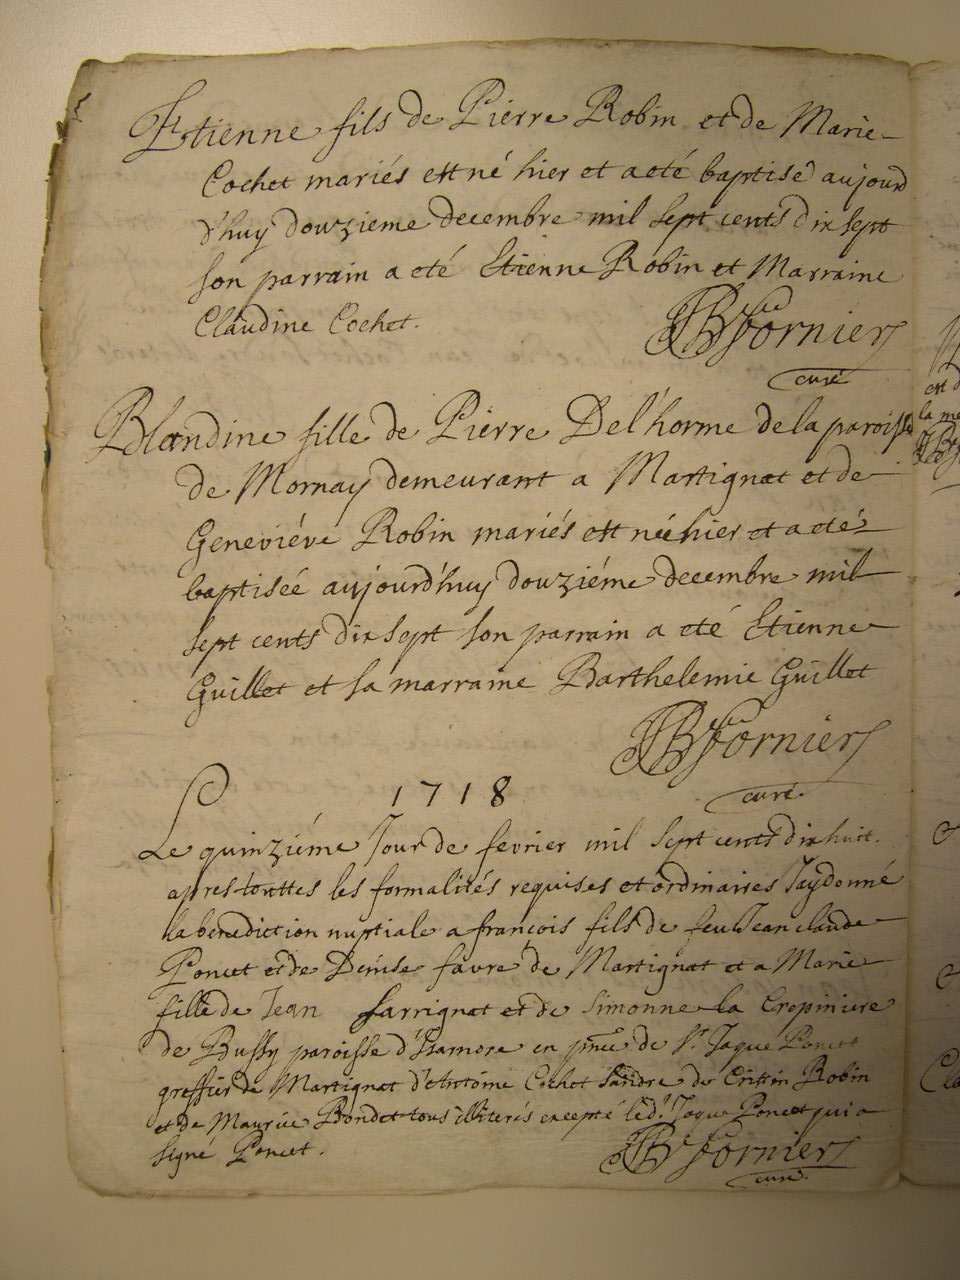 Etienne fils de Pierre Robin et de Marie
Cochet mariés est né hier et a eté baptisé aujourd
d'huy douzieme decembre mil sept cents dix sept
son parrain a eté Etienne Robin et Marraine
Claudine Cochet.
JB Fornier
curé
Blandine fille de Pierre Del'horme de la paroisse
de Mornay demeurant a Martignat et de
Geneviéve Robin mariés est néé hier et a eté
baptiséé aujourd'huy douziéme decembre mil
sept cents dix sept son parrain a eté Etienne
Guillet et sa marraine Barthelemie Guillet
JB Fornier
curé.
1718
Le quinziéme Jour de fevrier mil sept cents dix huit.
apres touttes les formalités requises et ordinaires J'ay donné
la benediction nuptiale a françois fils de feu Jean claude
Poncet et de Denise favre de Martignat et a Marie
fille de Jean Sarrignat et de Simonne la Crepiniere
de Bussy paroisse d'Isarnore en pñce de Sr. Jaque Poncet
greffier de Martignat d'Antoine Cochet Sandre de Crittin Robin
et de Maurice Bondet tous illiterés excepté led. Jaque Poncet qui a
signé Poncet.
JB Fornier
curé
est d
la me